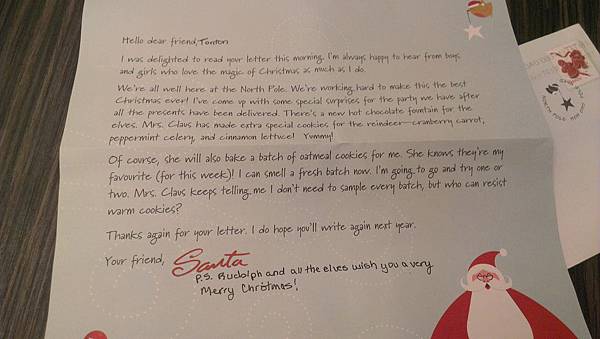 Hello dear friend, Tonton
I was delighted to read your letter this morning. I'm always happy to hear from boys
and girls who love the magic of Christmas as much as I do.
We're all well here at the North Pole. We're working hard to make this the best
Christmas ever! I've come up with some special surprises for the party we have after
all the presents have been delivered. There's a new hot chocolate fountain for the
elves. Mrs. Claus has made extra special cookies for the reindeer—cranberry carrot,
peppermint celery, and cinnamon lettuce! Yummy!
Of course, she will also bake a batch of oatmeal cookies for me. She knows they're my
favourite (for this week)! I can smell a fresh batch now. I'm going to go and try one or
two. Mrs. Claus keeps telling me I don't need to sample every batch, but who can resist
warm cookies?
Thanks again for your letter. I do hope you'll write again next year.
Your friend, Santa
P.S. Rudolph and all the elves wish you a very
Merry Christmas!
NORTH POLE